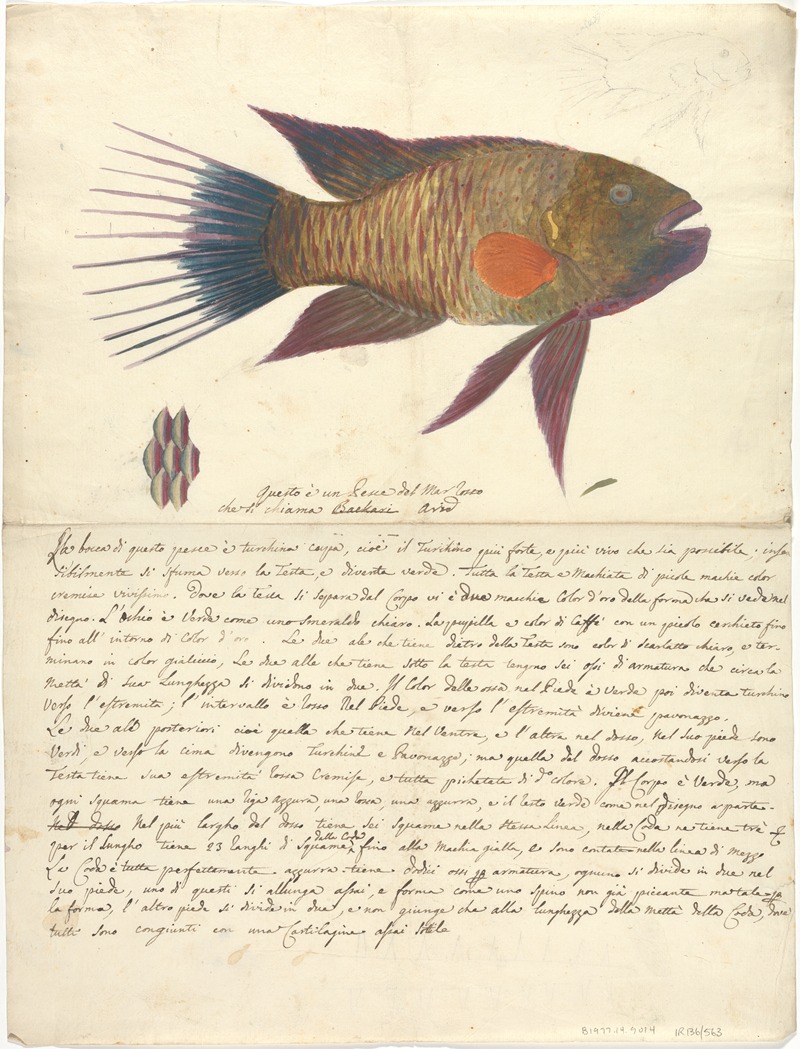 Questo è un Pesce del Mar Rosso
che si chiama Baskari Arod
La bocca di questo pesce è turchina cupa, cioè il Turchino più forte, e più vivo che sia possibile; insen
sibilmente si sfuma verso la Testa, e diventa verde. Tutta la Testa e Machiata di picole machie color
cremise vivissimo. Dove la testa si separa dal Corpo vi è due macchie Color d'oro della forma che si vede nel
disegno. L'Ochio è Verde come uno smeraldo chiaro. La pupilla e color di Caffé con un picolo cerchieto fino
fino all' intorno di Color d'oro. Le due ale che tiene dietro della Testa sono color di scarlatto chiaro, e ter-
minano in color gialiccio, Le due alle che tiene sotto la testa tengno sei ossi di armatura che circa la
Mettà di sua Lunghezza si dividono in due. Il Color delle ossa nel Piede è Verde poi diventa turchino
verso l'estremità; l'intervallo è Rosso Nel Piede, e verso l'estremità diviene pavonazzo.
Le due ale posteriori cioè quella che tiene Nel Ventre, e l'altra nel dosso, Nel suo piede sono
Verdi, e verso la cima divengono Turchine e Pavonazze; ma quella del dosso accostandosi verso la
Testa tiene sua estremità Rossa Cremise, e tutta pichetata di d.o colore. Il Corpo è Verde, ma
ogni squama tiene una riga azzura, una Rossa, una azzurra, e il resto verde come nel disegno a parte.
Nel dosso Nel più largho del dosso tiene sei squame nella stessa linea, nella Coda ne tiene trè e
per il lungho tiene 23 ranghi di Squame dalla Coda fino alla Machia gialla, e sono contate nella linea di mezzo
La Coda è tutta perfettamente azzurra tiene dodici ossi pr armatura, ognuno si divide in due nel
suo piede, uno di questi si allunga assai, e forma come uno spino non già picante ma tale pr
la forma, l'altro piede si divide in due, e non giunge che alla lunghezza della mettà della Coda, dove
tutti sono congiunti con una Cartilagine assai sotile
B1977.14.9014 1R136/563